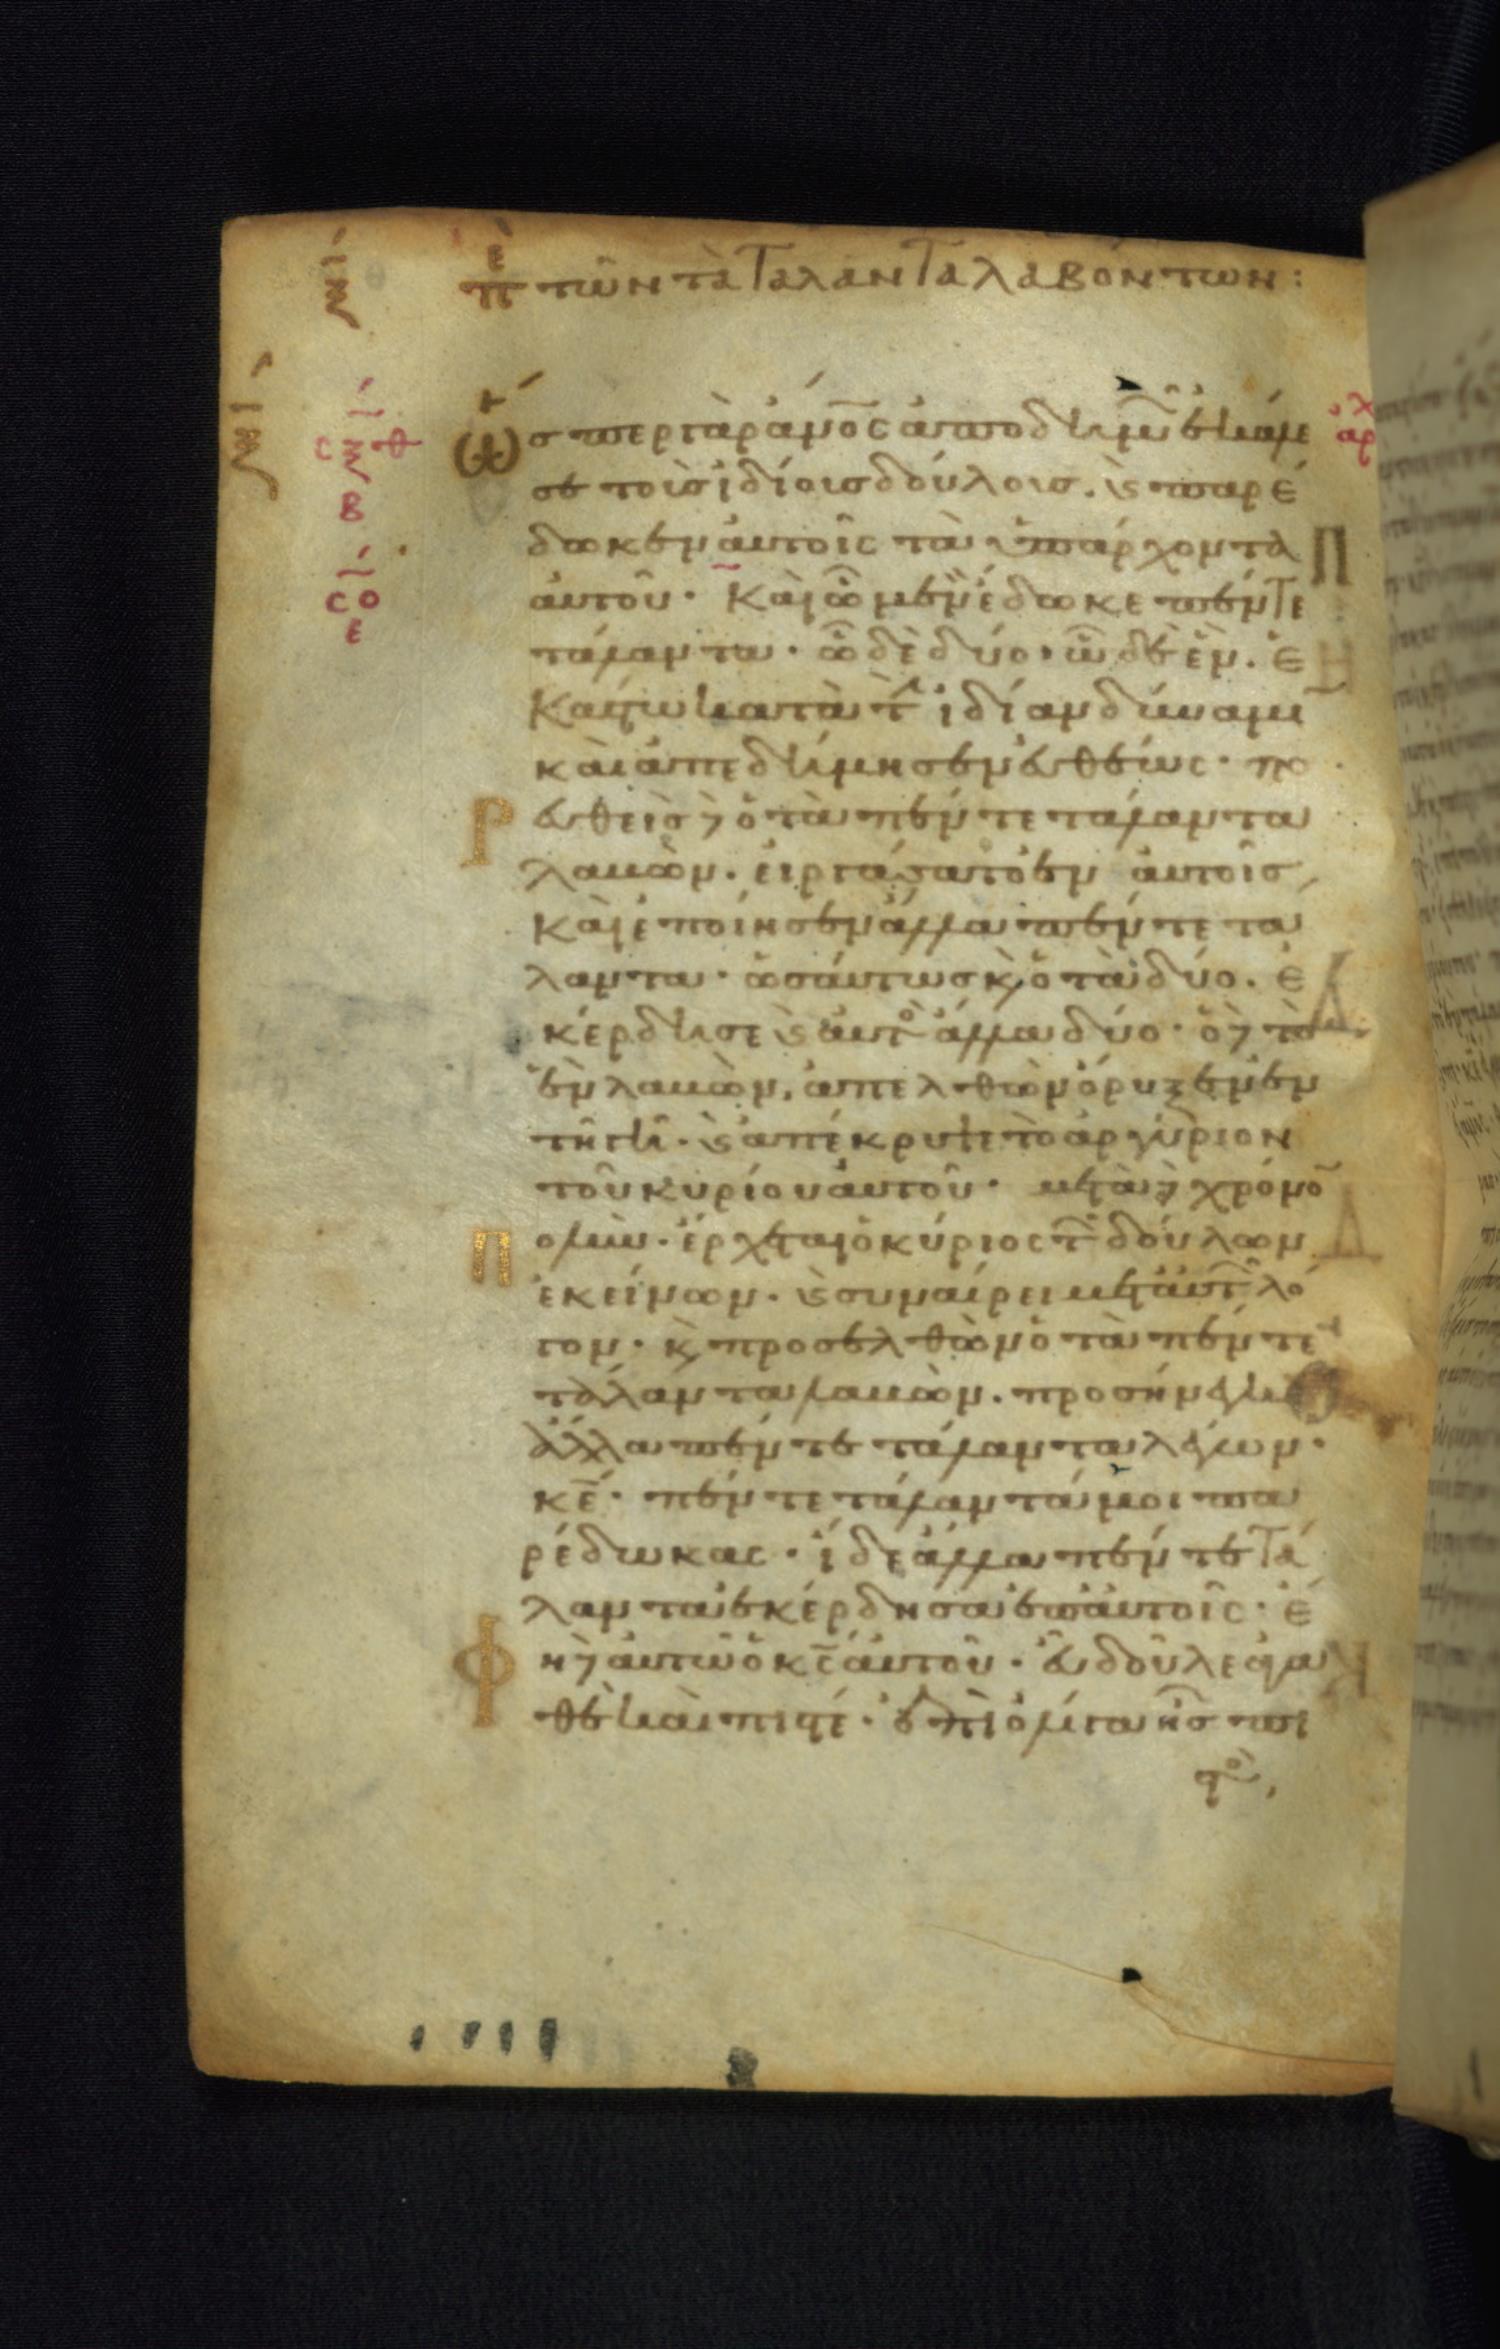 πε τῶν τὰ ταλαντα λαβόντων:
Ὥσπερ γὰρ ἄνος ἀποδημῶν ἐκάλε
σε τοῖς ἰδίοις δούλοις. καὶ παρέ
δωκεν αὐτοῖς τὰ ὑπάρχοντα
αὐτοῦ· Καὶ ὧ μὲν ἔδωκε πέντε
τάλαντα· ὧ δὲ δύο· ὧ δὲ ἕν. ἑ
κάστω κατὰ τὴν ἰδίαν δύναμι
καὶ ἀπεδήμησεν εὐθέως· πο
ρευθεὶς δὲ ὁ τὰ πέντε τάλαντα
λαβὼν. εἰργάσατο ἐν αὐτοῖς
καὶ ἐποίησεν ἄλλα πέντε τά
λαντα· ὡσάυτως κὶ ὁ τὰ δύο. ἐ
κέρδησε καὶ αὐτὸς ἄλλα δύο· ὁ δὲ τὸ
ἓν λαβὼν, ἀπελθὼν ὄρυξεν ἐν
τῆ γῆ. καὶ ἀπέκρυψε τὸ ἀργύριον
τοῦ κυρίου αὐτοῦ· μετὰ δὲ χρόνο
πολὺν. ἔρχεται ὁ κύριος τῶν δούλων
ἐκείνων. καὶ συναίρει μετ' αὐτῶν λό
γον. κὶ προσελθὼν ὁ τὰ πέντε
τάλαντα λαβὼν. προσήνεγκεν
ἄλλα πέντε τάλαντα λέγων·
κε· πέντε τάλαντά μοι πα
ρέδωκας· ἴδε ἄλλα πέντε τά
λαντα ἐκέρδησα ἐπ' αὐτοῖς· ἔ
φη δὲ αὐτῶ ὁ κς αὐτοῦ. εὖ δοῦλε ἀγα
θὲ καὶ πιστέ. ἐπὶ ὀλίγα ἦς πι
στὸς,